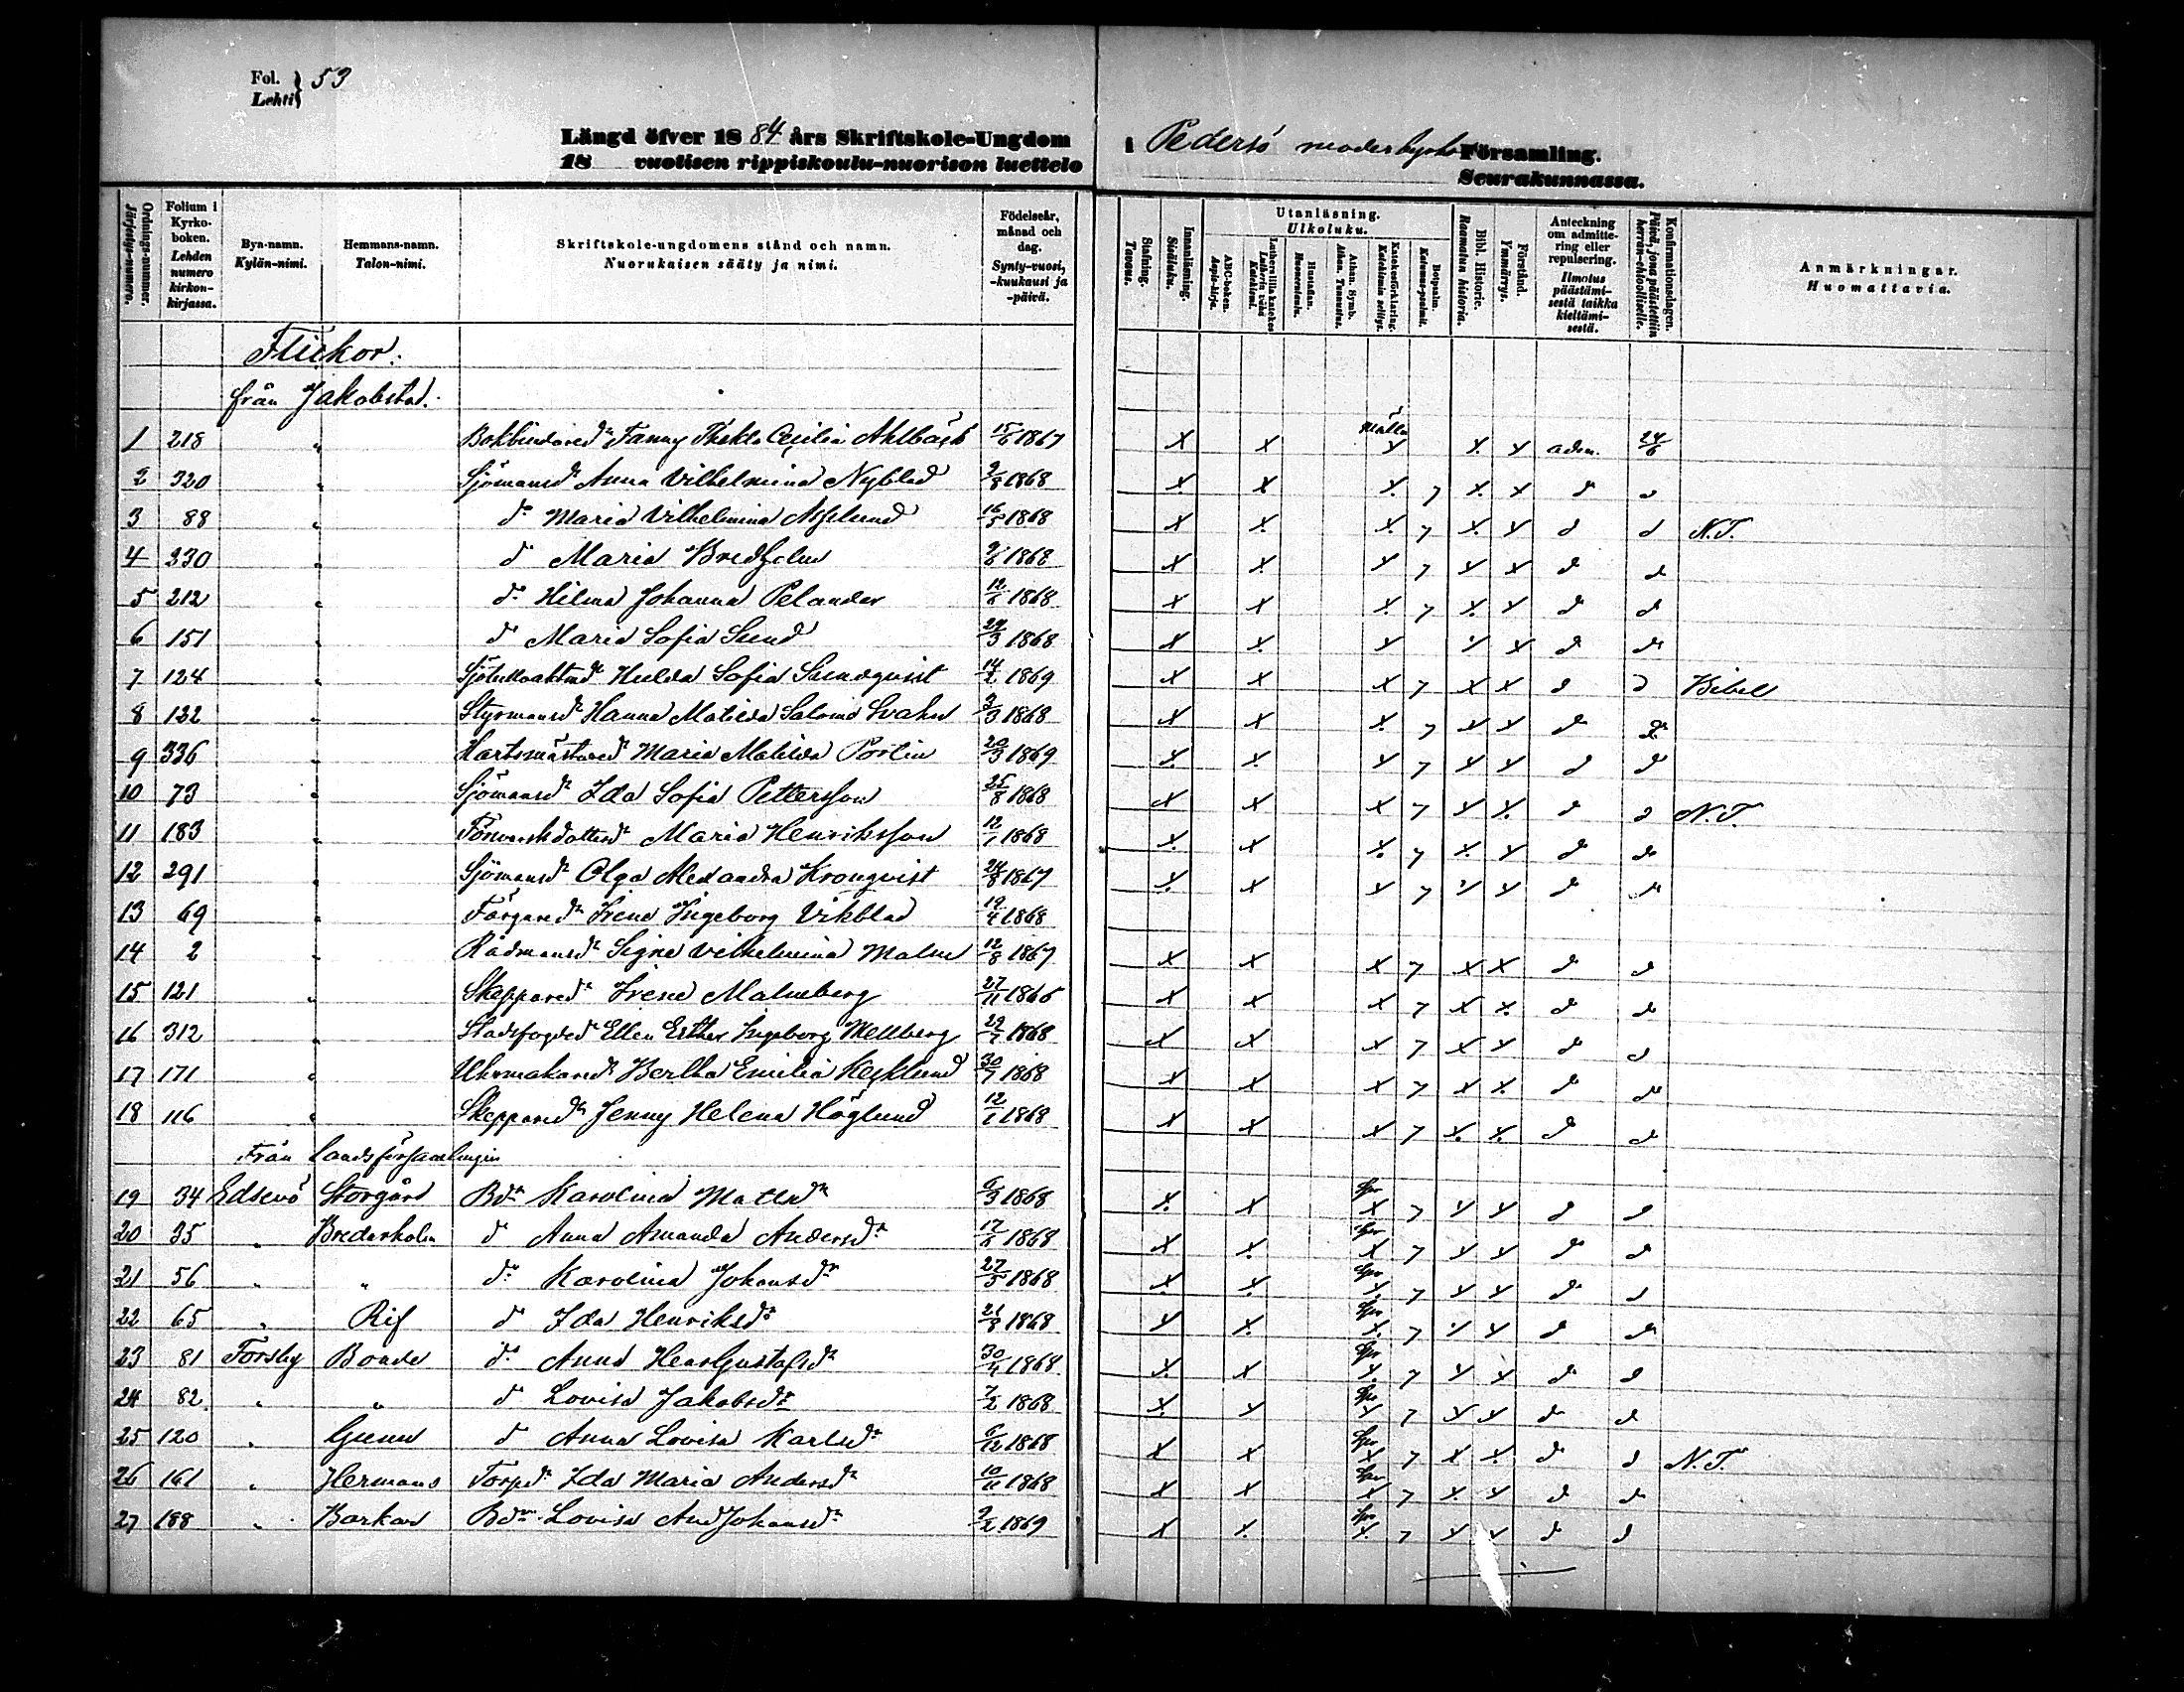 Fol. 53
Lehti
Längd öfver 1884 års Skriftskole-Ungdom i Pedersö moderkyrko Församling.
18 vuotisen rippiskoulu-nuorison luettelo Seurakunnassa.
Ordnings-nummer. Järjestys-numero.
Folium i Kyrko-boken. Lehden numero kirkon-kirjassa.
Bya-namn. Kylän-nimi.
Hemmans-namn. Talon-nimi.
Skriftskole-ungdomens stånd och namn. Nuorukaisen sääty ja nimi.
Födelseår, månad och dag. Synty-vuosi, -kuukausi ja -päivä.
Stafning. Tavaus.
Innanläsning. Sisäluku.
Utanläsning. Ulkoluku.
ABC-boken. Aapis-kirja.
Lutheri lilla katekes Lutherin vähä Katekismi.
Hustaflan. Huoneentaulu.
Athan. Symb. Athan. Tunnustus.
Katekesförklaring. Katekismin selitys.
Botpsalm. Katumus-psalmit.
Bibl. Historie. Raamatun historia.
Förstånd. Ymmärrys.
Anteckning om admittering eller repulsering. Ilmotus päästämisestä taikka kieltämisestä.
Konfirmationsdagen. Päivä, jona päästettiin herran-ehtoolliselle.
Anmärkningar. Huomattavia.
Flickor:
från Jakobstad.
1 218 " Bokbindared:r Fanny Thekla Cecilia Ahlbäck 15/6 1867 x x Mälla x x x adm. 24/6
2 320 " Sjömansd:r Anna Vilhelmina Nyblad 2/8 1868 x x x 7 x x d:o d:o
3 88 " d:o Maria Vilhelmina Asplund 16/5 1868 x x x 7 x x d:o d:o N.T.
4 230 " d:o Maria 1868 x x x 7 x x d:o d:o
5 212 " d:o Hilma Johanna Pelander 12/6 1868 x x x 7 x x d:o d:o
6 151 " d:o Maria Sofia Sund 29/3 1868 x x x x x d:o d:o
7 124 " Hulda Sofia Sundqvist 14/2 1869 x x x 7 x x d:o d:o Bibel
8 122 " Styrmansd:r Hanna Matilda Salome Svahn 3/3 1868 x x x 7 x x d:o d:o
9 336 " Maria Matilda Portin 20/3 1869 x x x 7 x x d:o d:o
10 73 " Sjömansd:r Ida Sofia Pettersson 25/8 1868 x x x 7 x x d:o d:o N.T.
11 183 " Maria Henriksson 12/1 1868 x x x 7 x x d:o d:o
12 291 " Sjömansd:r Olga Alexandra Kronqvist 24/8 1867 x x x 7 x x d:o d:o
13 69 " Färgared:r Irene Ingeborg Vikblad 19/4 1868
14 2 " Rådmansd:r Signe Vilhelmina Malm 12/8 1867 x x x 7 x x d:o d:o
15 121 " Skeppared:r Irene Malmberg 27/11 1866 x x x 7 x x d:o d:o
16 312 " Stadsfogded:r Ellen Esther Ingeborg Mellberg 29/7 1868 x x x 7 x x d:o d:o
17 171 " Uhrmakared:r Bertha Emilia Häcklund 30/7 1868 x x x 7 x x d:o d:o
18 116 " Skeppared:r Jenny Helena Höglund 12/1 1868 x x x 7 x x d:o d:o
Från landsförsamlingen
19 34 Edsevö Storgård Bd:r Karolina Matsd:r 6/3 1868 x x x 7 x x d:o d:o
20 35 " Bredarholm d:o Anna Amanda Andersd:r 17/6 1868 x x x 7 x x d:o d:o
21 56 " " d:o Karolina Johansd:r 27/5 1868 x x x 7 x x d:o d:o
22 65 " Rif d:o Ida Henriksd:r 21/8 1868 x x x 7 x x d:o d:o
23 81 Forsby Bonde d:o Anna HenrGustafsd:r 30/4 1868 x x x 7 x x d:o d:o
24 82 " " d:o Lovisa Jakobsd:r 7/2 1868 x x x 7 x x d:o d:o
25 120 " Gunn d:o Anna Lovisa Karlsd:r 6/12 1868 x x x 7 x x d:o d:o N.T.
26 161 " Hermans Torpd:r Ida Maria Andersd:r 10/11 1868 x x x 7 x x d:o d:o
27 188 " Barkar Bd:r Lovisa AndJohansd:r 9/2 1869 x x x 7 x x d:o d:o